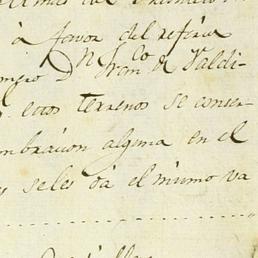 à favor del refèri
D.ⁿ Fran.ᶜᵒ de Valdi-
estos terrenos se conser-
mbracion alguna en el
s se les dá el mismo va